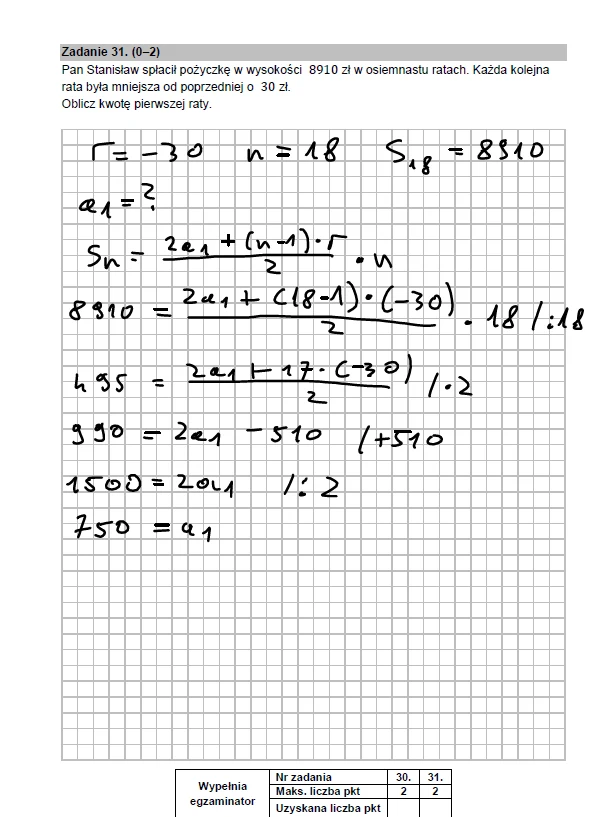 Zadanie 31. (0–2)
Pan Stanisław spłacił pożyczkę w wysokości 8910 zł w osiemnastu ratach. Każda kolejna
rata była mniejsza od poprzedniej o 30 zł.
Oblicz kwotę pierwszej raty.
r = -30 n = 18 S₁₈ = 8910
a₁ = ?
Sₙ = (2a₁ + (n-1)·r)/2 · n
8910 = (2a₁ + (18-1)·(-30))/2 · 18 /:18
495 = (2a₁ + 17·(-30))/2 /·2
990 = 2a₁ - 510 /+510
1500 = 2a₁ /:2
750 = a₁
Wypełnia
egzaminator
Nr zadania 30. 31.
Maks. liczba pkt 2 2
Uzyskana liczba pkt